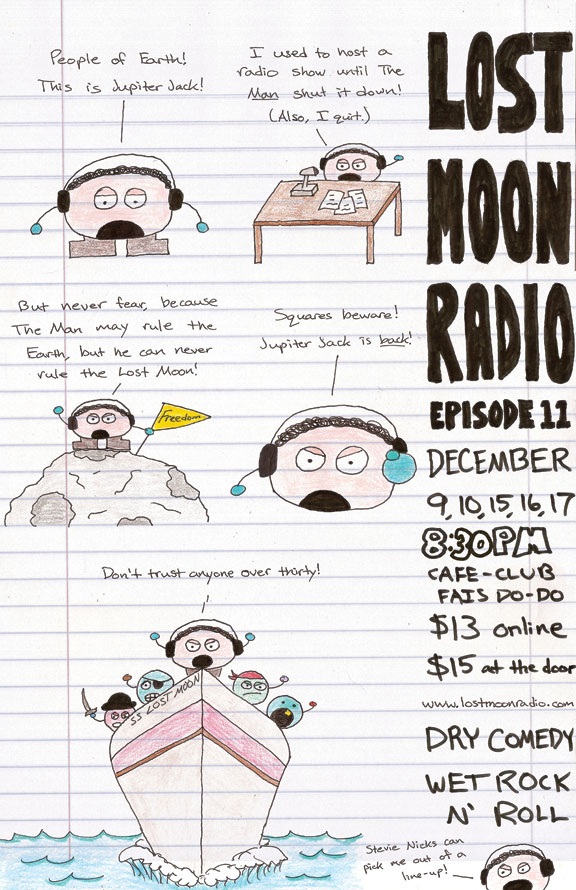 People of Earth!
This is Jupiter Jack!
I used to host a
radio show until The
Man shut it down!
(Also, I quit.)
But never fear, because
The Man may rule the
Earth, but he can never
rule the Lost Moon!
Freedom
Squares beware!
Jupiter Jack is back!
Don't trust anyone over thirty!
SS LOST MOON
LOST
MOON
RADIO
EPISODE 11
DECEMBER
9, 10, 15, 16, 17
8:30PM
CAFE-CLUB
FAIS DO-DO
$13 online
$15 at the door
www.lostmoonradio.com
DRY COMEDY
WET ROCK
N' ROLL
Stevie Nicks can
pick me out of a
line-up!